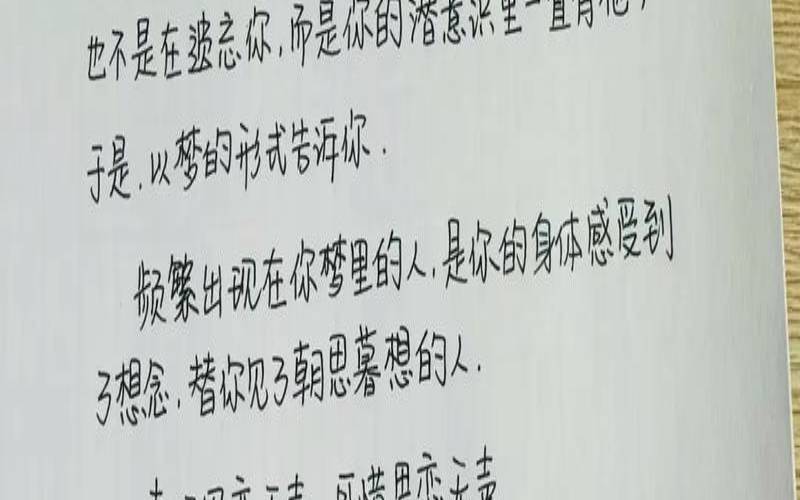 也不是在遗忘你,而是你的潜意识里一直有他,
于是,以梦的形式告诉你.
频繁出现在你梦里的人,是你的身体感受到
了想念,替你见了朝思暮想的人.
可惜思恋无声